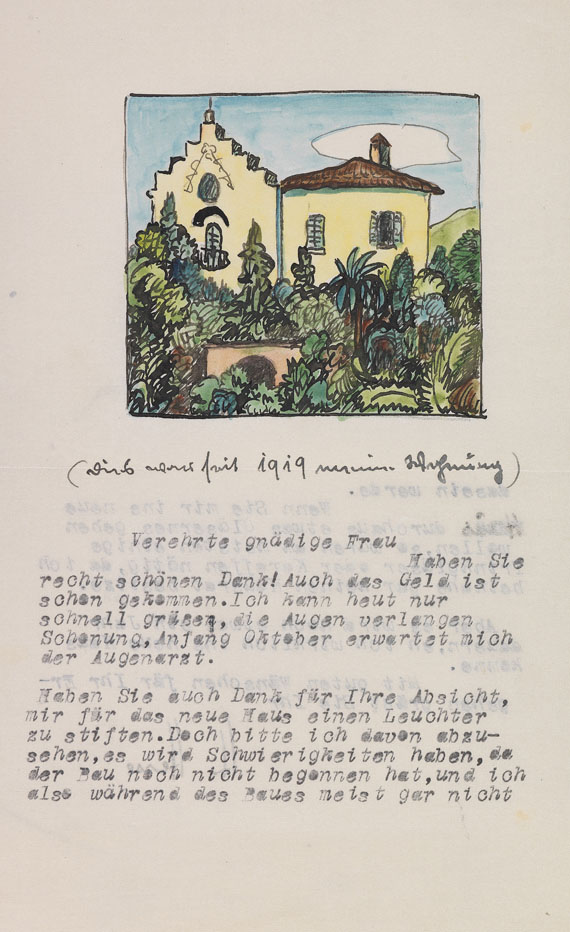 (dies war seit 1919 meine Wohnung)
Verehrte gnädige Frau
Haben Sie
recht schönen Dank! Auch das Geld ist
schon gekommen.Ich kann heut nur
schnell grüsen,die Augen verlangen
Schonung,Anfang Oktober erwartet mich
der Augenarzt.
Haben Sie auch Dank für Ihre Absicht,
mir für das neue Haus einen Leuchter
zu stiften.Doch bitte ich davon abzu-
sehen,es wird Schwierigkeiten haben,da
der Bau noch nicht begonnen hat,und ich
also während des Baues meist gar nicht